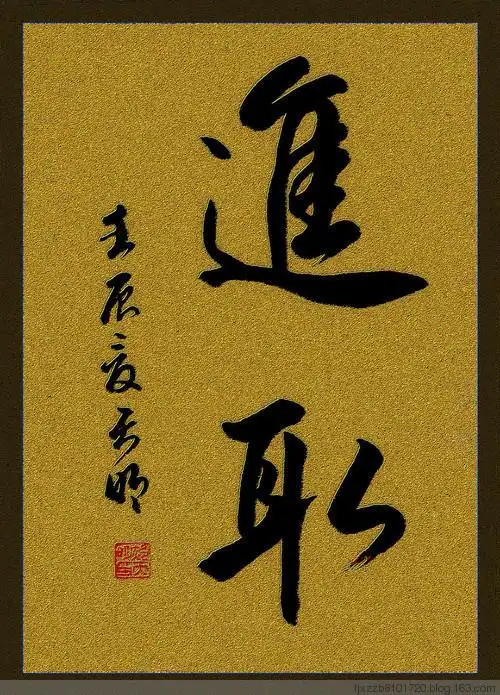 進取
壬辰夏天明
fjxzzb8101720.blog.163.com